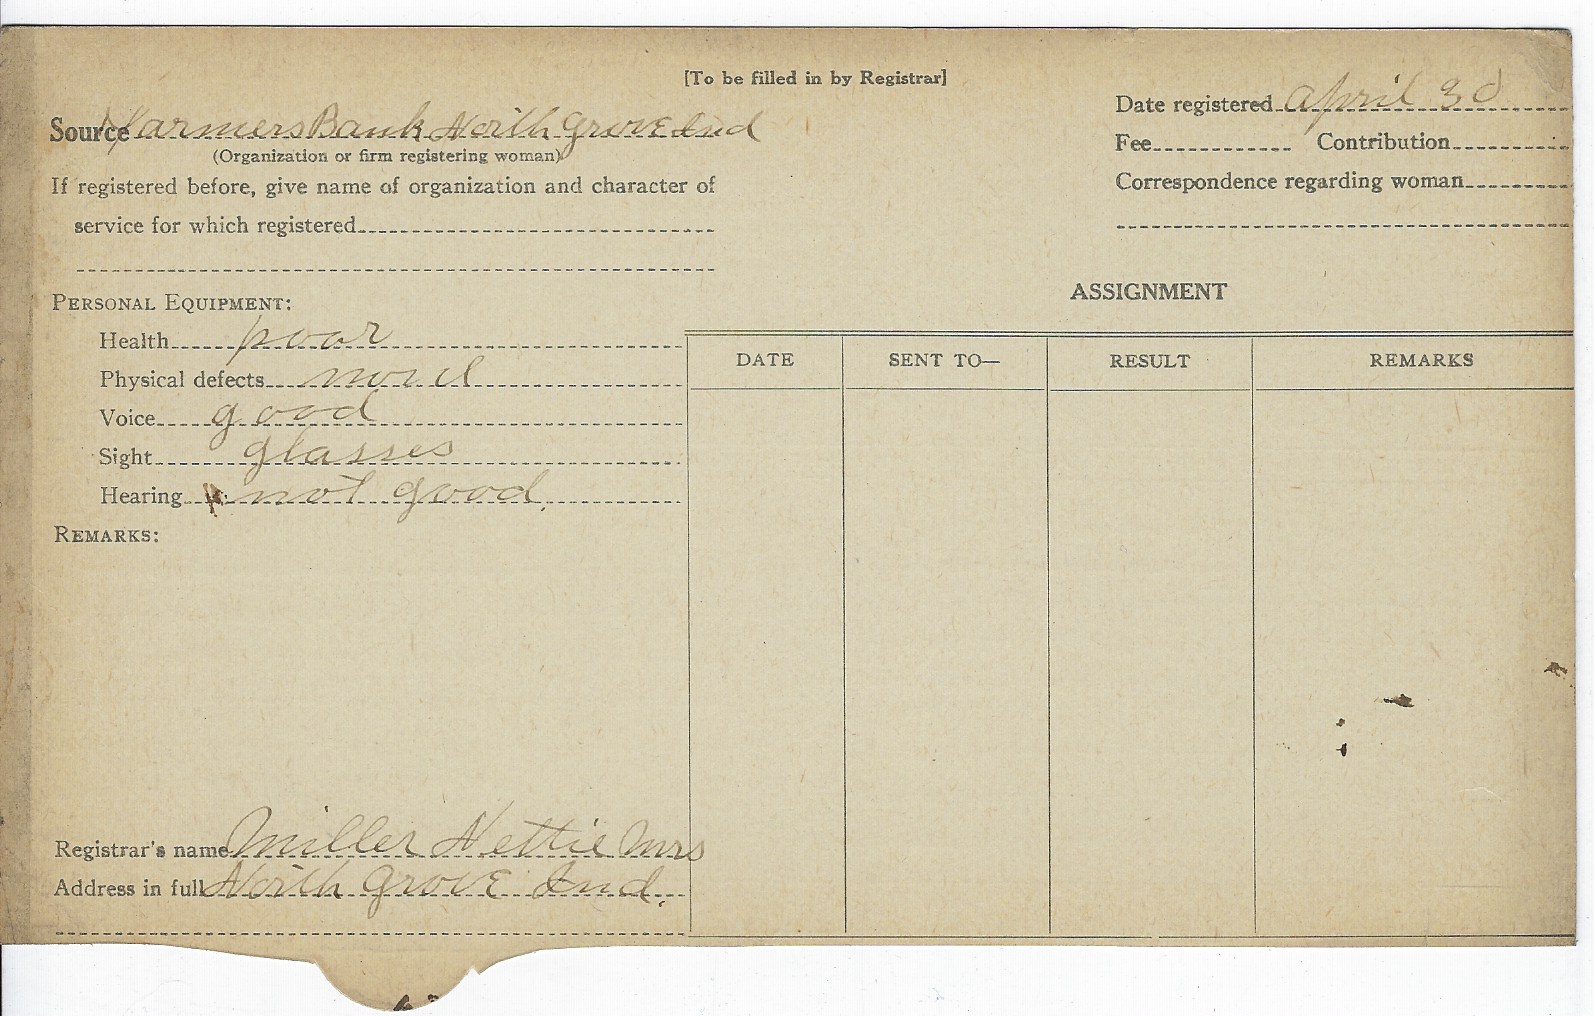 [To be filled in by Registrar]
Source Farmers Bank North Grove Ind
(Organization or firm registering woman)
Date registered April 30
Fee Contribution
If registered before, give name of organization and character of
service for which registered
Correspondence regarding woman
PERSONAL EQUIPMENT:
Health poor
Physical defects
Voice good
Sight glasses
Hearing not good
REMARKS:
ASSIGNMENT
DATE SENT TO— RESULT REMARKS
Registrar's name Miller Nettie Mrs
Address in full North Grove Ind.